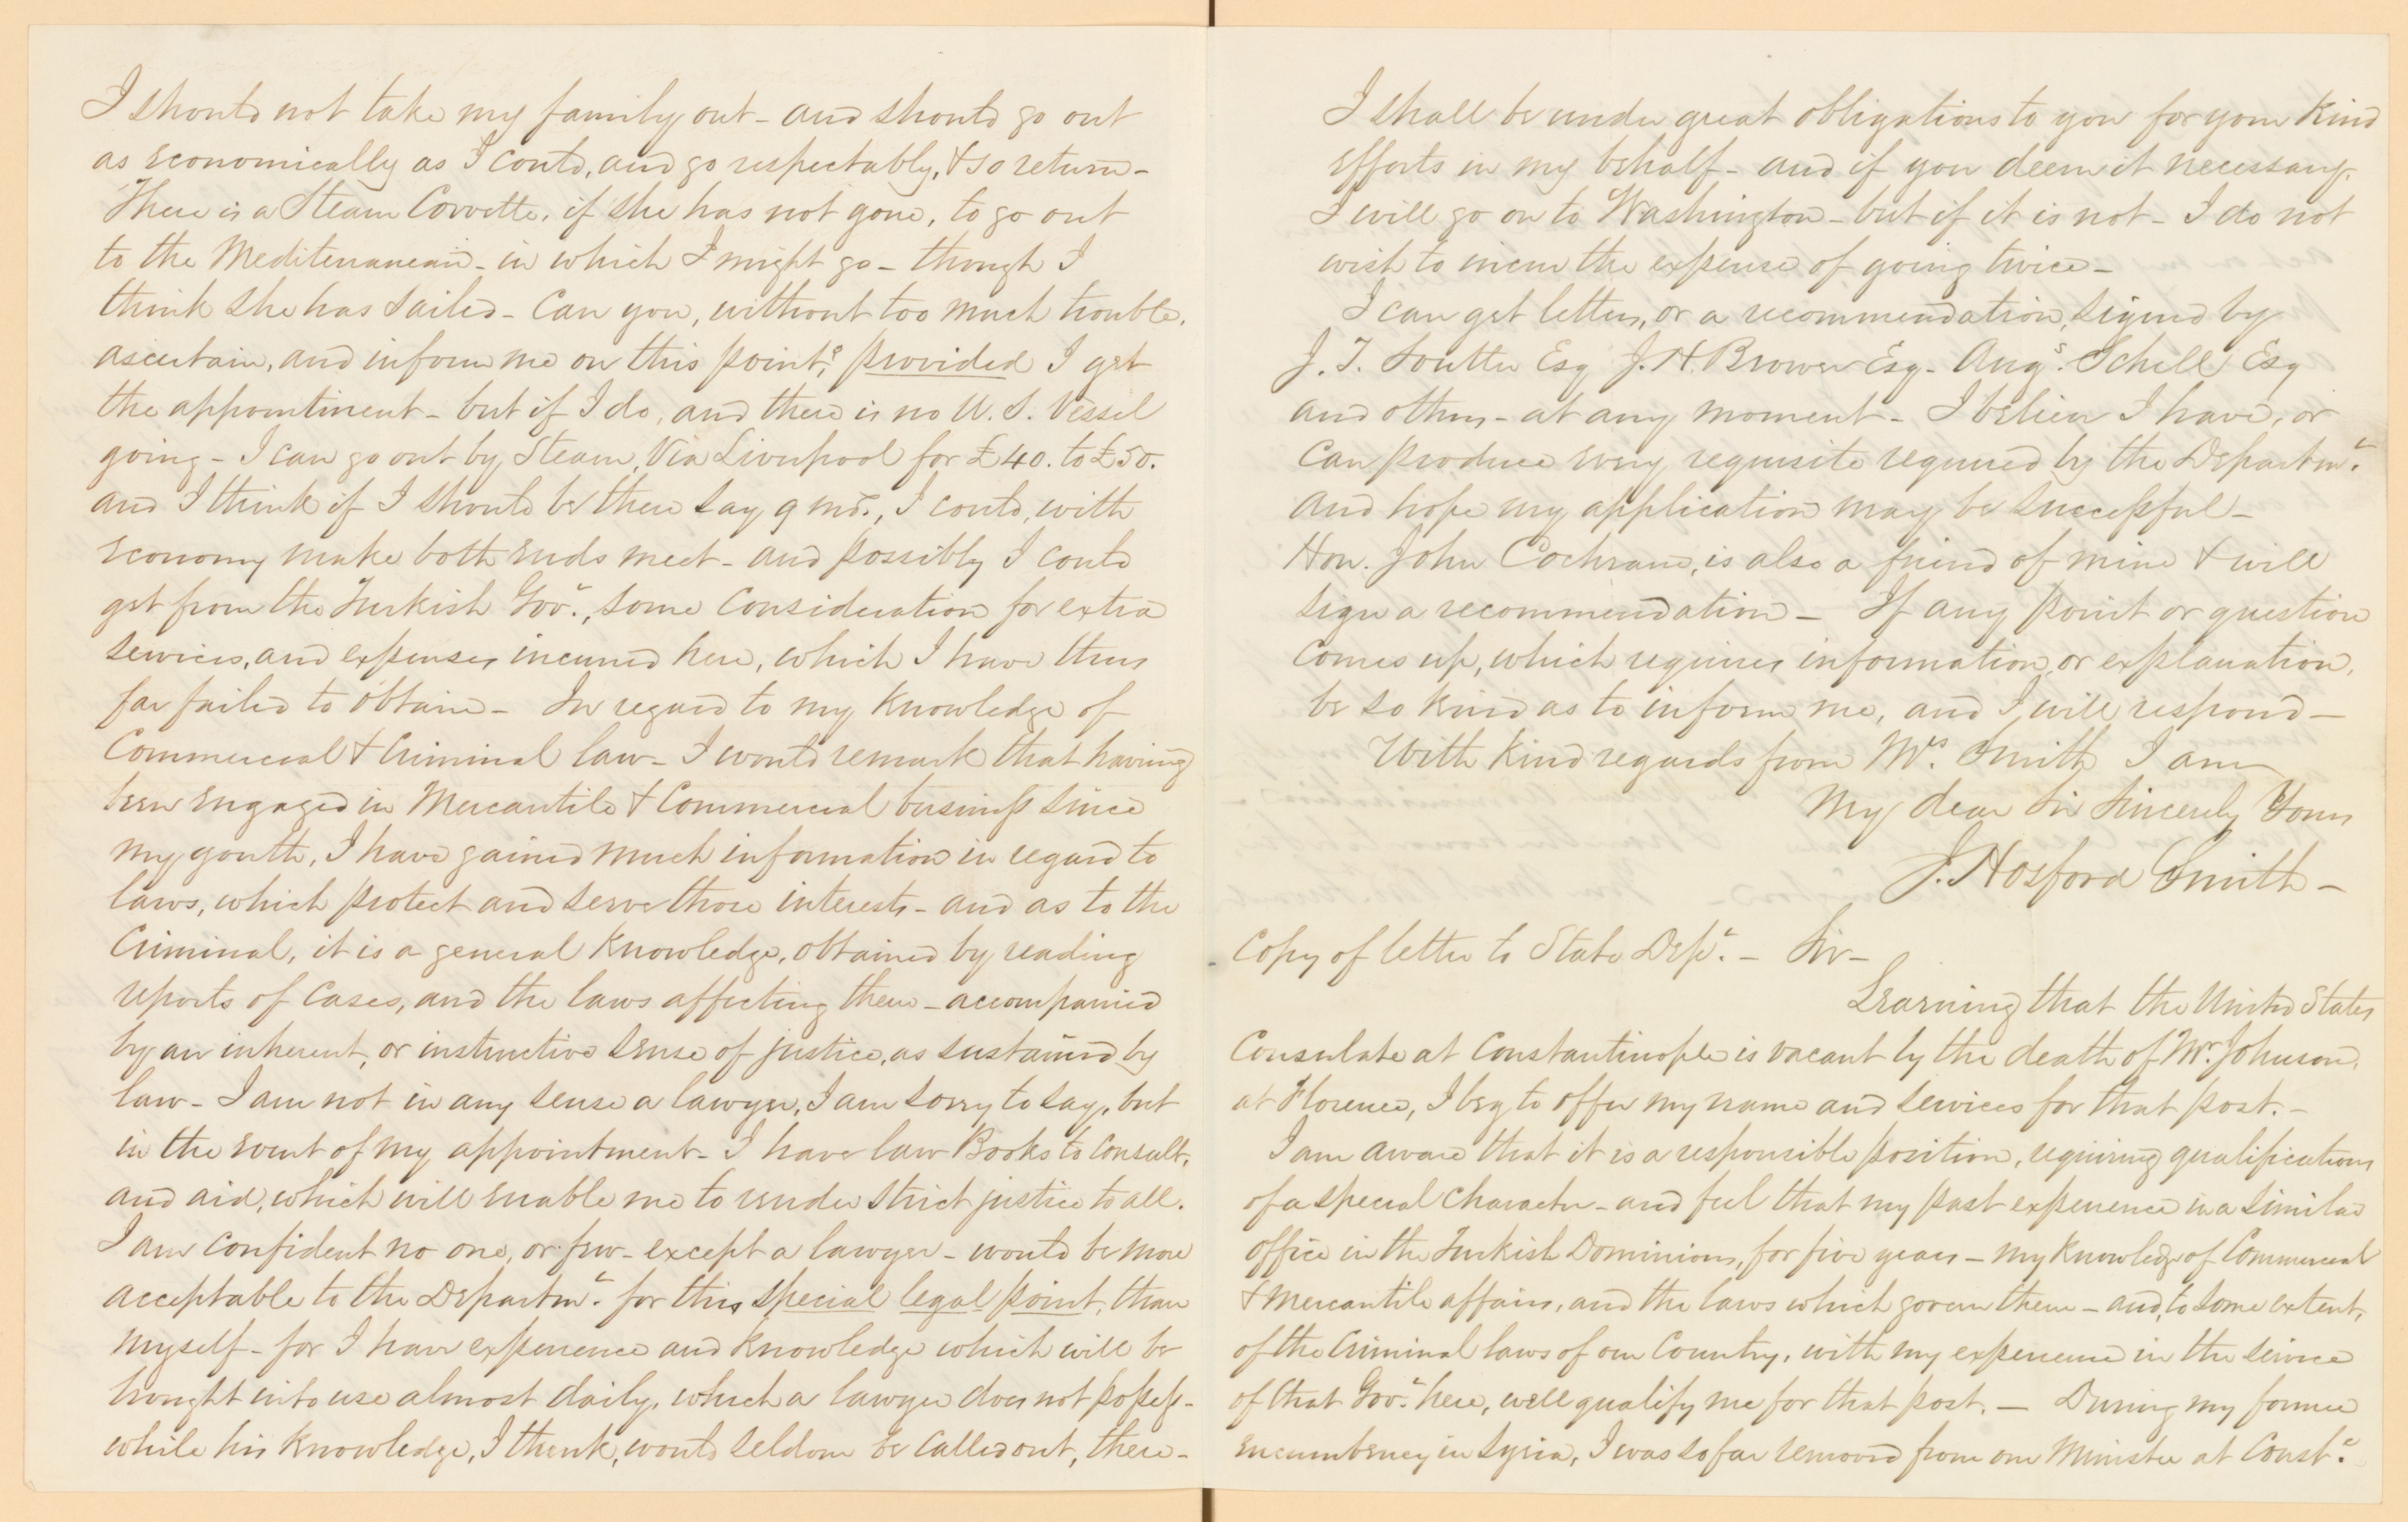 I should not take my family out - and should go out
as economically as I could, and go respectably, & so return -
There is a Steam Corvette, if she has not gone, to go out
to the Mediterranean - in which I might go - though I
think she has sailed - Can you, without too much trouble,
ascertain, and inform me on this point, provided I get
the appointment - but if I do, and there is no U.S. Vessel
going - I can go out by Steam, Via Liverpool for £40. to £50.
and I think if I should be there say 9 mos., I could, with
economy make both ends meet - and possibly I could
get from the Turkish Govt., some consideration for extra
services, and expenses incurred here, which I have thus
far failed to obtain - In regard to my knowledge of
Commercial & Criminal law - I would remark that having
been engaged in Mercantile & Commercial business since
my youth, I have gained much information in regard to
laws, which protect and serve those interests - and as to the
Criminal, it is a general knowledge, obtained by reading
reports of cases, and the laws affecting them - accompanied
by an inherent, or instinctive sense of justice, as sustained by
law - I am not in any sense a lawyer, I am sorry to say, but
in the event of my appointment - I have law Books to consult,
and aid, which will enable me to render strict justice to all.
I am confident no one, or few - except a lawyer - would be more
acceptable to the Departmt. for this special legal point, than
myself - for I have experience and knowledge which will be
brought into use almost daily, which a lawyer does not possess -
while his knowledge, I think, would seldom be called out, there -
I shall be under great obligations to you for your kind
efforts in my behalf - and if you deem it necessary,
I will go on to Washington - but if it is not - I do not
wish to incur the expense of going twice -
I can get letters, or a recommendation, signed by
J. T. Soutter Esq J. H. Brower Esq - Augs. Schell Esq
and others - at any moment - I believe I have, or
can produce every requisite required by the Departmt.
and hope my application may be successful -
Hon. John Cochrane, is also a friend of mine & will
sign a recommendation - If any point or question
comes up, which requires information, or explanation,
be so kind as to inform me, and I will respond -
With kind regards from Mrs. Smith I am
My dear Sir Sincerely Yours
J. Hosford Smith -
Copy of letter to State Dept. - Sir -
Learning that the United States
Consulate at Constantinople is vacant by the death of Mr. Johnson,
at Florence, I beg to offer my name and services for that post. -
I am aware that it is a responsible position, requiring qualifications
of a special character - and feel that my past experience in a similar
office in the Turkish Dominions, for five years - my knowledge of Commercial
& Mercantile affairs, and the laws which govern them - and, to some extent,
of the Criminal laws of our Country, with my experience in the service
of that Govt. here, well qualify me for that post. - During my former
encumbency in Syria, I was so far removed from our Minister at Constt.